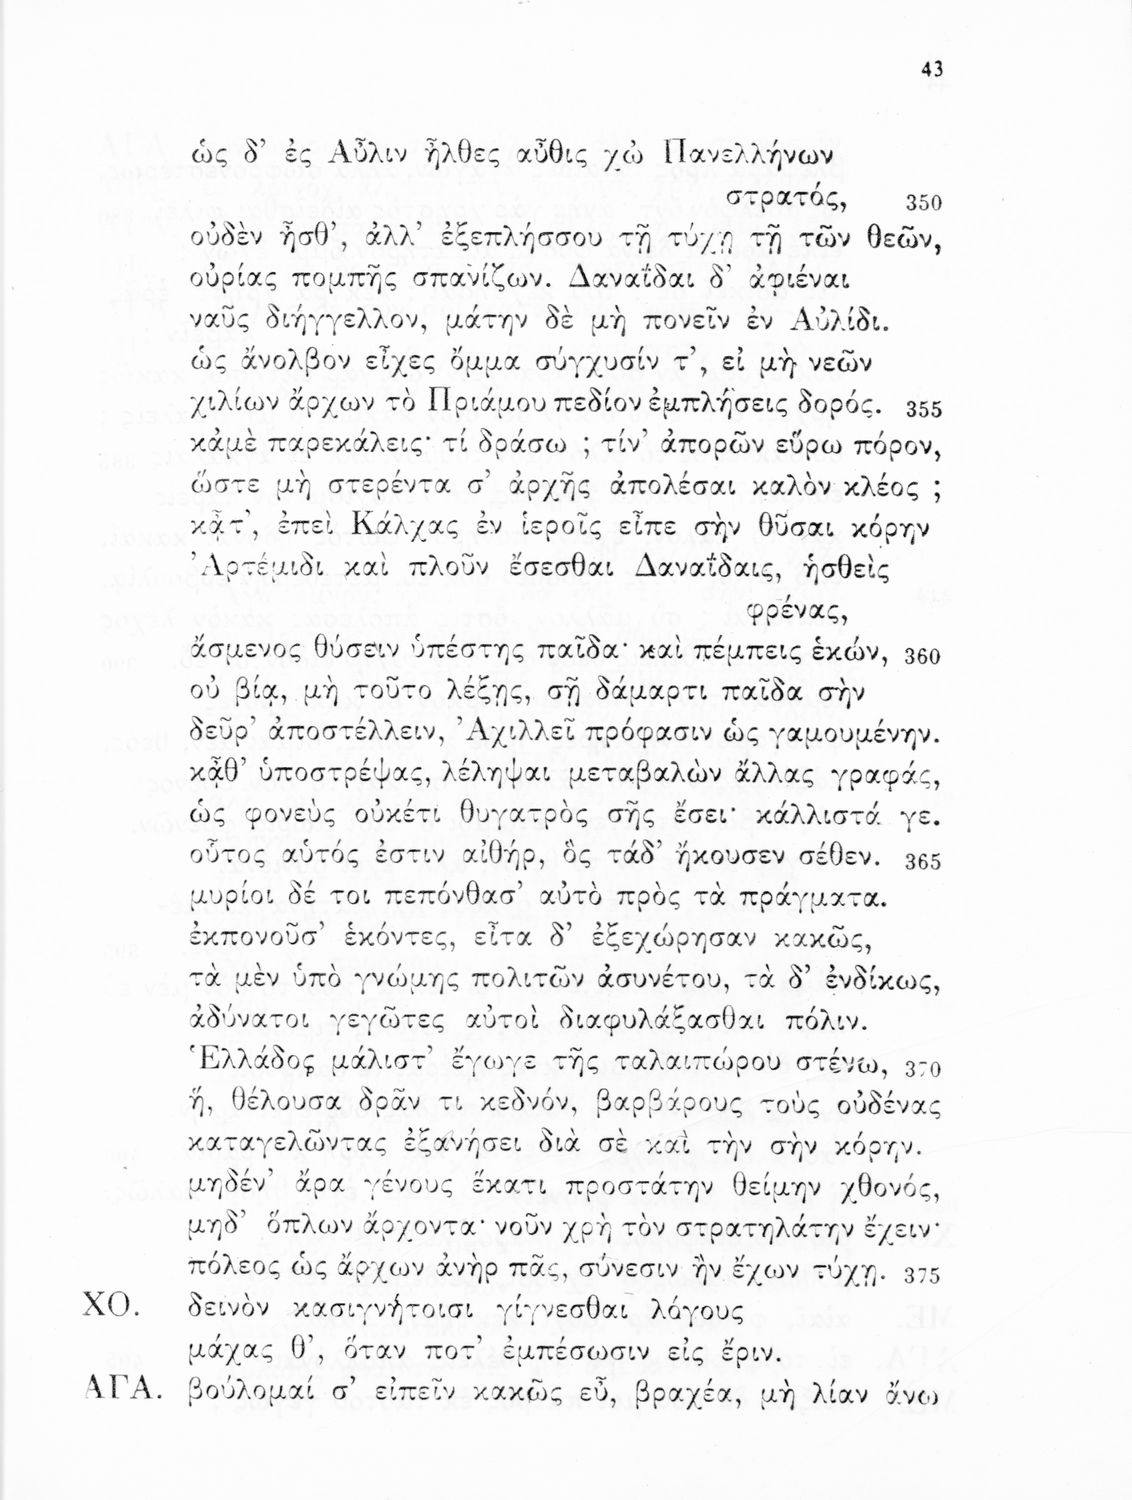 43
ὡς δ’ ἐς Αὖλιν ἦλθες αὖθις χὠ Πανελλήνων
στρατός, 350
οὐδὲν ἦσθ’, ἀλλ’ ἐξεπλήσσου τῇ τύχῃ τῇ τῶν θεῶν,
οὐρίας πομπῆς σπανίζων. Δαναΐδαι δ’ ἀφιέναι
ναῦς διήγγελλον, μάτην δὲ μὴ πονεῖν ἐν Αὐλίδι.
ὡς ἄνολβον εἶχες ὄμμα σύγχυσίν τ’, εἰ μὴ νεῶν
χιλίων ἄρχων τὸ Πριάμου πεδίον ἐμπλήσεις δορός. 355
κἀμὲ παρεκάλεις· τί δράσω ; τίν’ ἀπορῶν εὕρω πόρον,
ὥστε μὴ στερέντα σ’ ἀρχῆς ἀπολέσαι καλὸν κλέος ;
κᾆτ’, ἐπεὶ Κάλχας ἐν ἱεροῖς εἶπε σὴν θῦσαι κόρην
Ἀρτέμιδι καὶ πλοῦν ἔσεσθαι Δαναΐδαις, ἡσθεὶς
φρένας,
ἄσμενος θύσειν ὑπέστης παῖδα· καὶ πέμπεις ἑκών, 360
οὐ βίᾳ, μὴ τοῦτο λέξῃς, σῇ δάμαρτι παῖδα σὴν
δεῦρ’ ἀποστέλλειν, Ἀχιλλεῖ πρόφασιν ὡς γαμουμένην.
κᾆθ’ ὑποστρέψας, λέληψαι μεταβαλὼν ἄλλας γραφάς,
ὡς φονεὺς οὐκέτι θυγατρὸς σῆς ἔσει· κάλλιστά γε.
οὗτος αὑτός ἐστιν αἰθήρ, ὃς τάδ’ ἤκουσεν σέθεν. 365
μυρίοι δέ τοι πεπόνθασ’ αὐτὸ πρὸς τὰ πράγματα.
ἐκπονοῦσ’ ἑκόντες, εἶτα δ’ ἐξεχώρησαν κακῶς,
τὰ μὲν ὑπὸ γνώμης πολιτῶν ἀσυνέτου, τὰ δ’ ἐνδίκως,
ἀδύνατοι γεγῶτες αὐτοὶ διαφυλάξασθαι πόλιν.
Ἑλλάδος μάλιστ’ ἔγωγε τῆς ταλαιπώρου στένω, 370
ἥ, θέλουσα δρᾶν τι κεδνόν, βαρβάρους τοὺς οὐδένας
καταγελῶντας ἐξανήσει διὰ σὲ καὶ τὴν σὴν κόρην.
μηδέν’ ἄρα γένους ἕκατι προστάτην θείμην χθονός,
μηδ’ ὅπλων ἄρχοντα· νοῦν χρὴ τὸν στρατηλάτην ἔχειν·
πόλεος ὡς ἄρχων ἀνὴρ πᾶς, σύνεσιν ἢν ἔχων τύχῃ. 375
ΧΟ. δεινὸν κασιγνήτοισι γίγνεσθαι λόγους
μάχας θ’, ὅταν ποτ’ ἐμπέσωσιν εἰς ἔριν.
ΑΓΑ. βούλομαί σ’ εἰπεῖν κακῶς εὖ, βραχέα, μὴ λίαν ἄνω